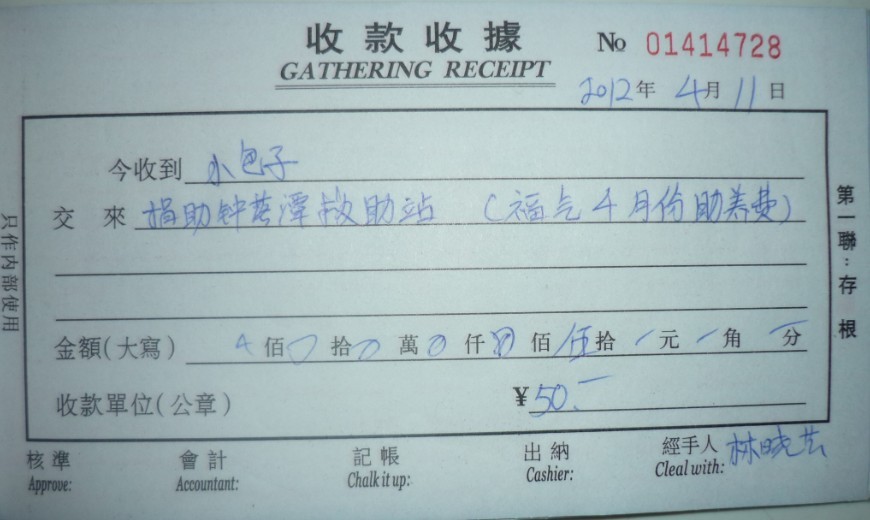 收款收據 No 01414728
GATHERING RECEIPT
2012年 4月 11日
今收到 小包子
交來 捐助钟落潭救助站 (福气4月份助养费)
金額(大寫) 佰 0 拾 0 萬 0 仟 0 佰 伍 拾 - 元 - 角 - 分
收款單位(公章) ¥50.-
核準 會計 記帳 出納 經手人 林晓芸
Approve: Accountant: Chalk it up: Cashier: Cleal with:
只作内部使用
第一聯:存根